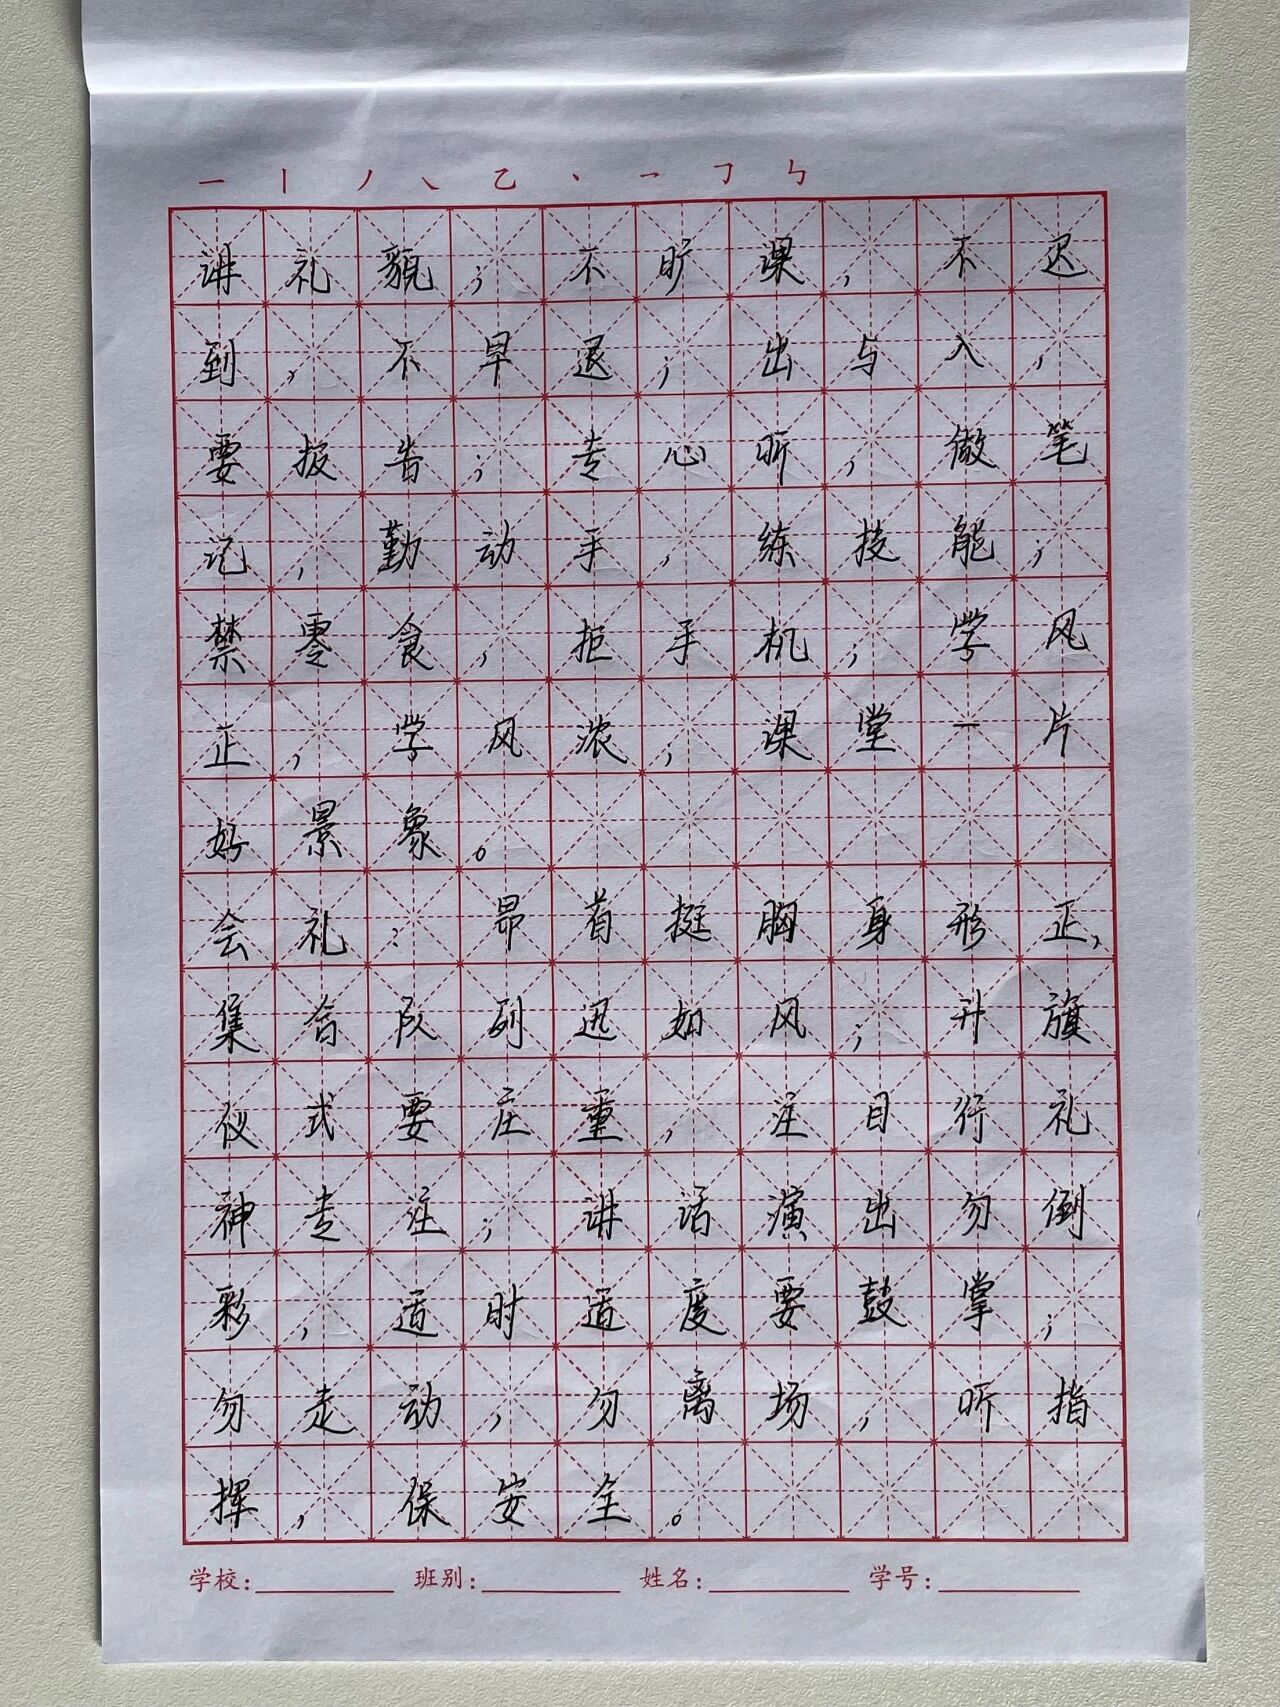 一丨丿㇏乙丶㇖㇆㇉
讲礼貌；不旷课，不迟
到，不早退；出与入，
要报告；专心听，做笔
记，勤动手，练技能；
禁零食，拒手机，学风
正，学风浓；课堂一片
好景象。
会礼：昂首挺胸身形正，
集合队列迅如风；升旗
仪式要庄重，注目行礼
神专注；讲话演出勿倒
彩，适时适度要鼓掌；
勿走动，勿离场，听指
挥，保安全。
学校： 班别： 姓名： 学号：